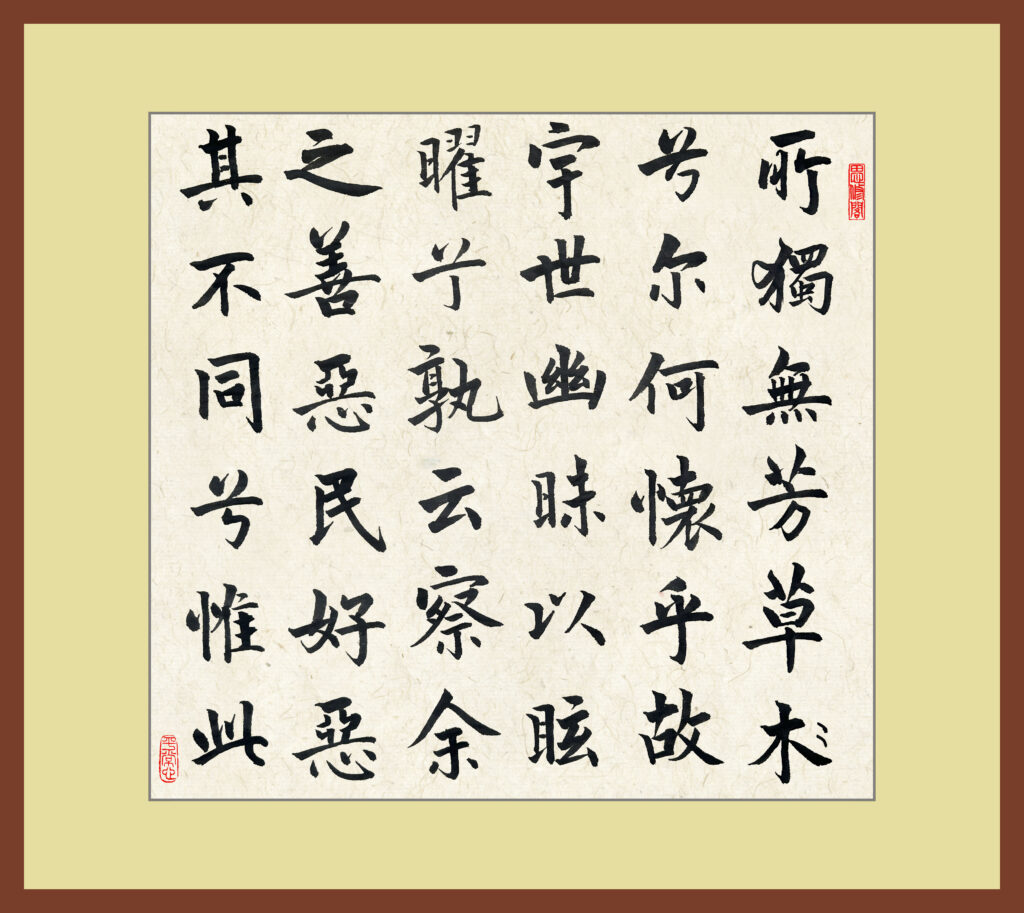 思修閣
所獨無芳草木
兮尔何懷乎故
宇世幽昧以眩
曜兮孰云察余
之善惡民好惡
其不同兮惟此
平常心